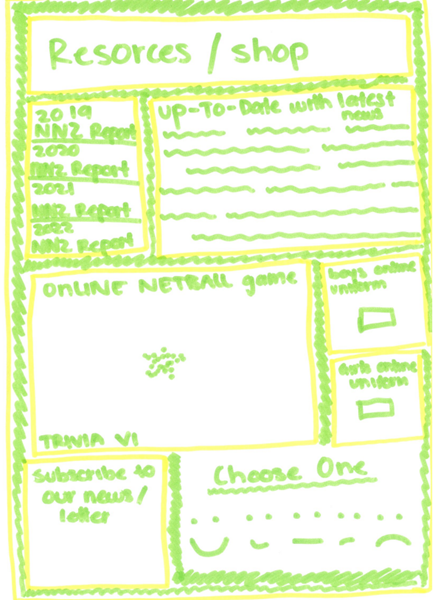 Resorces / shop
2019
NNZ Report
2020
NNZ Report
2021
NNZ Report
2022
NNZ Report
UP-TO-Date with latest
news
ONLINE NETBALL game
TRIVIA V1
boys online
uniform
Girls online
uniform
Subscribe to
our news/
letter
Choose One